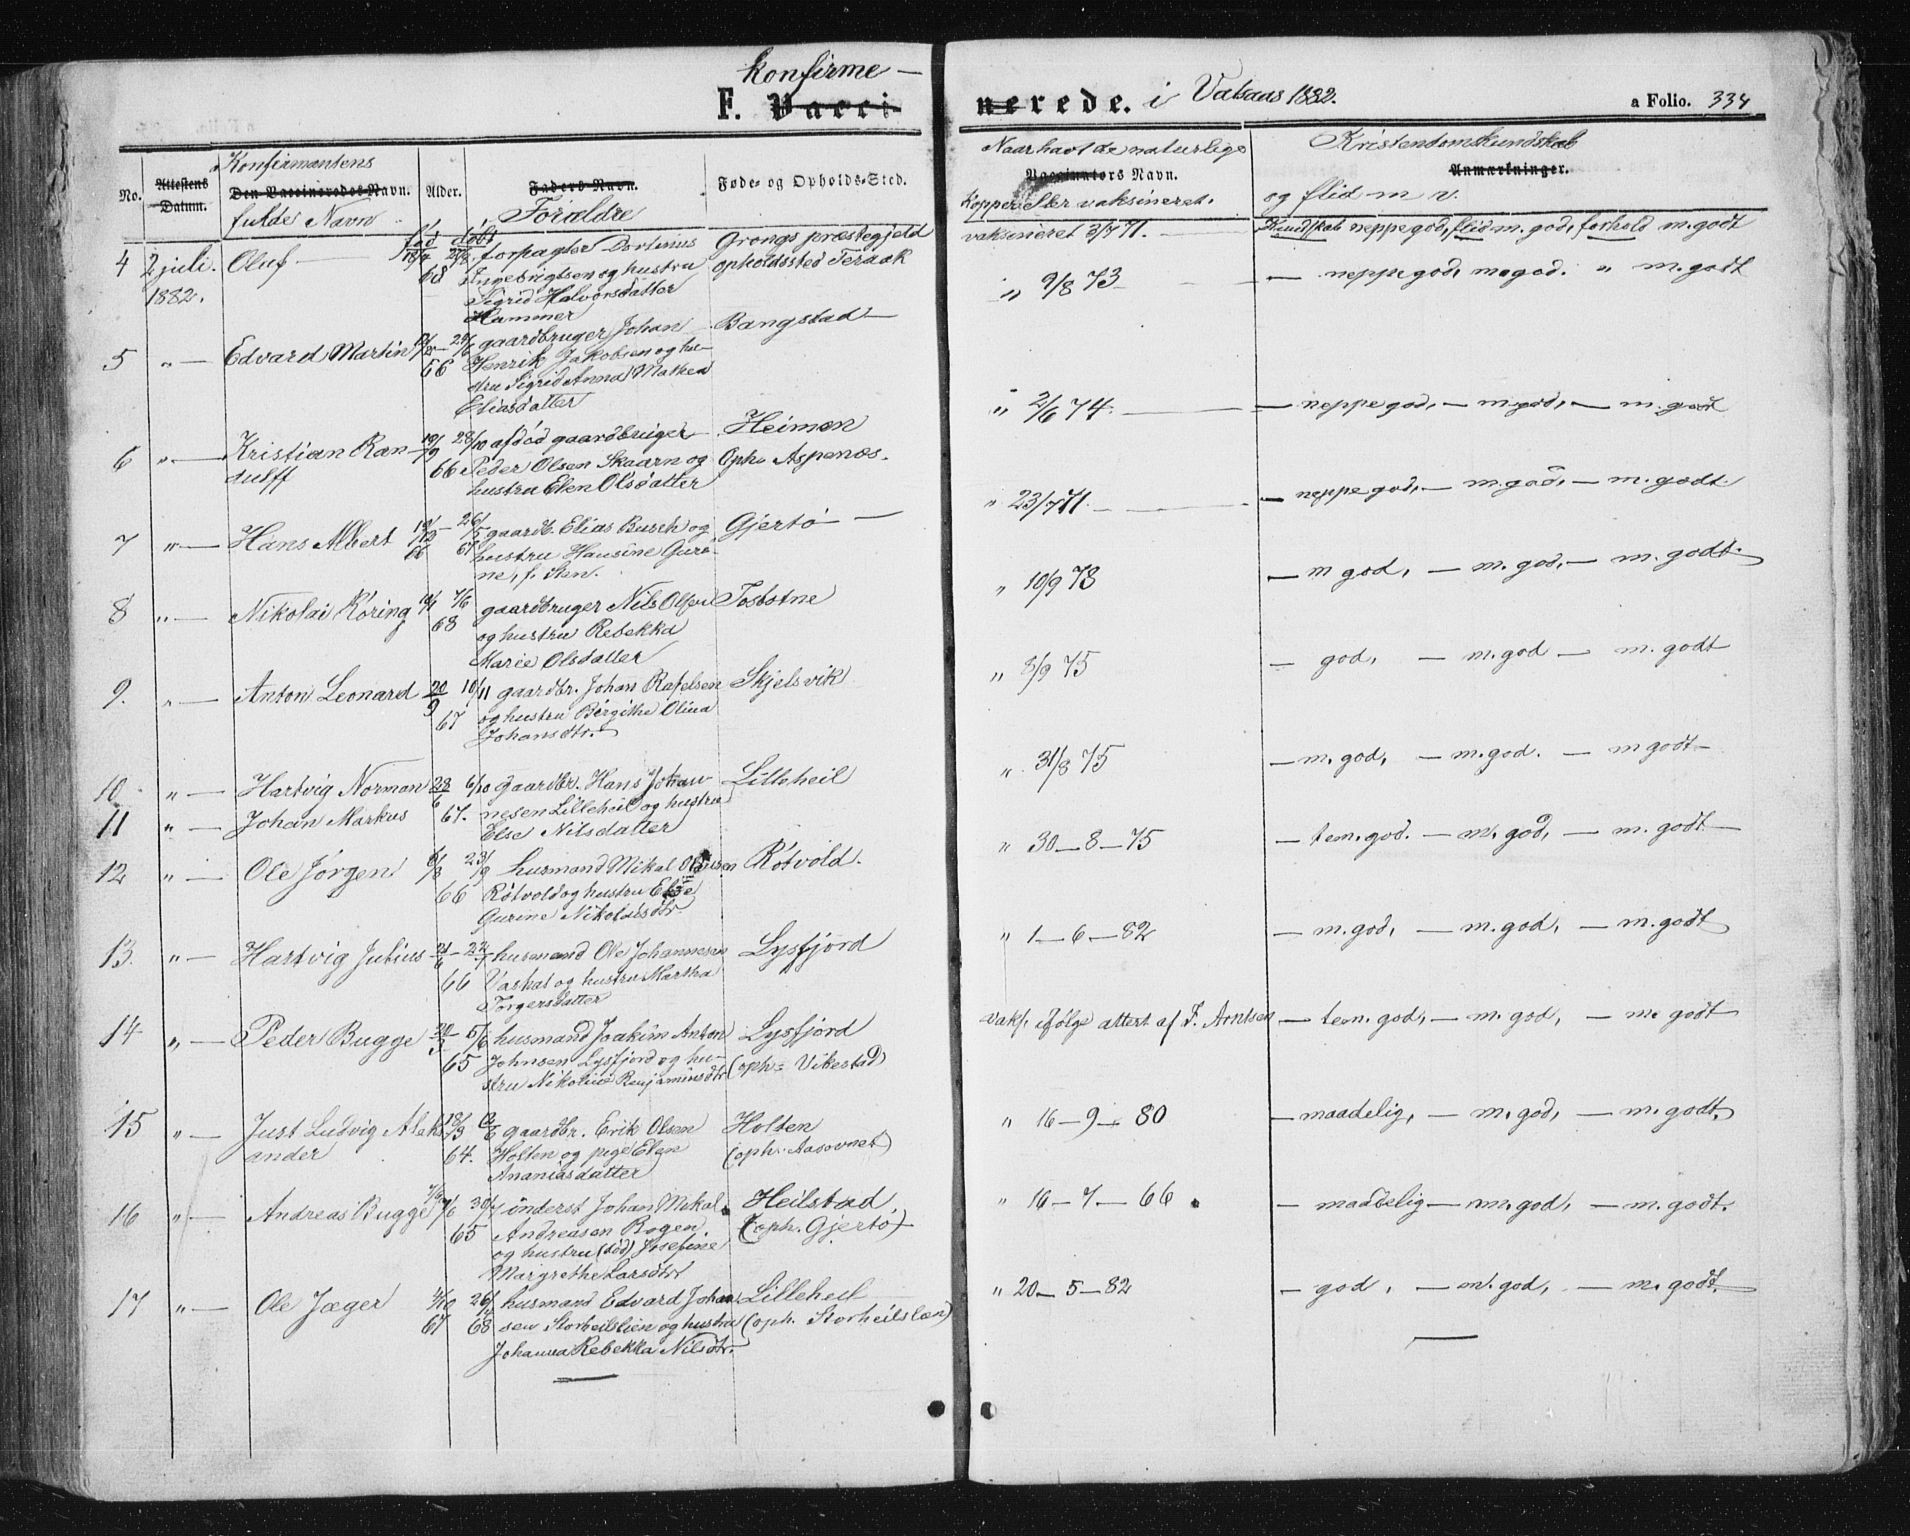 konfirme-
F. Vacci-
nerede. i Vatsaas 1882.
a Folio. 334
No.
Attestens Datum.
Konfirmantens
Den Vaccineredes Navn.
fulde Navn
Alder.
Faders Navn.
Forældre
Føde- og Opholds-Sted.
Naar havt de naturlige
Vaccinators Navn.
Kopper eller vaksineret.
Kristendomskundskab
Anmærkninger.
og flid m v.
født døbt
4 2 juli Oluf 68 forpagter
1882. Ingebrigtsen og hustru
Sigrid Halvorsdatter
Hammer
Grongs præstegjeld
opholdssted Teraak
vaksineret 3/7 71. Kundskab neppe god, flid m. god, forhold m. godt
5 " Edvard Martin 66 gaardbruger Johan
Henrik Jakobsen og hu-
stru Sigrid Anna Mathea
Eliasdatter
Bangstad
" 9/8 73 neppe god, m. god. " m. godt
6 " Kristian Ran-
dulff
19/9 28/10 66 afdød gaardbruger
Peder Olsen Skaarn og
hustru Elen Olsdatter
Heimon
Oph. Aspenæs.
" 2/6 74. neppe god, m. god, m. godt
7 " Hans Albert 66 26/5 67 gaardb. Elias Bursch og
hustru Hansine Guri-
ne, f. Sten.
Gjertø
" 23/7 71. neppe god, m. god, m. godt.
8 " Nikolai Koring 7/6 68 gaardbruger Nils Olsen
og hustru Rebekka
Marie Olsdatter
Tosbotne
" 10/9 73 m god, m. god, m. godt.
9. " Anton Leonard 20/9 10/11 67 gaardbr. Johan Rafelsen
og hustru Birgithe Olina
Johansdtr.
Skjelsvik
" 8/9 75 god, m. god m. godt
10 " Hartvig Norman 23/6 6/10 67. gaardbr. Hans Johan-
11 " Johan Markus nesen Lilleheil og hustru
Else Nilsdatter
Lilleheil
" 31/8 75 m. god, m. god. m godt
12 " Ole Jørgen 23/9 66 husmand Mikal
Røtvold og hustru Else
Gurine Nikolaisdtr.
Røtvold.
" 30-8-75 tem. god. m. god, m. godt
13. " Hartvig Julius 21/6 22/7 66 husmand Ole Johannesen
Vashal og hustru Martha
Torgersdatter
Lysfjord
" 1-6-82 m. god, m. god, m. godt
14 " Peder Bugge 20/3 5/6 65 husmand Joakim Anton
Johnsen Lysfjord og hu-
stru Nikoline Benjaminsdtr
Lysfjord
(oph = Vikestad)
vaks. ifølge attest af F. Arntsen tem. god, m. god, m. godt
15 " Just Ludvig Aleks
ander
64. gaardbr. Erik Olsen
Holten og pige Elen
Ananiasdatter
Holten
(oph. Aasovnet)
" 16-9-80 maadelig, m. god, m. godt.
16 " Andreas Bugge 30/7 65 inderst Johan Mikal
Andreasen Bogen
og hustru (død) Josefine
Margrethe Larsdtr
Heilstad,
(oph. Gjertø)
" 16-7-66. maadelig m. god, m. godt.
17 " Ole Jæger 67 68 husmand Edvard Johan
sen Storheilslien og hustru
Johanna Rebekka Nilsdtr.
Lilleheil
(oph. Storheilslæn)
" 20-5-82 god, m. god, m. godt.